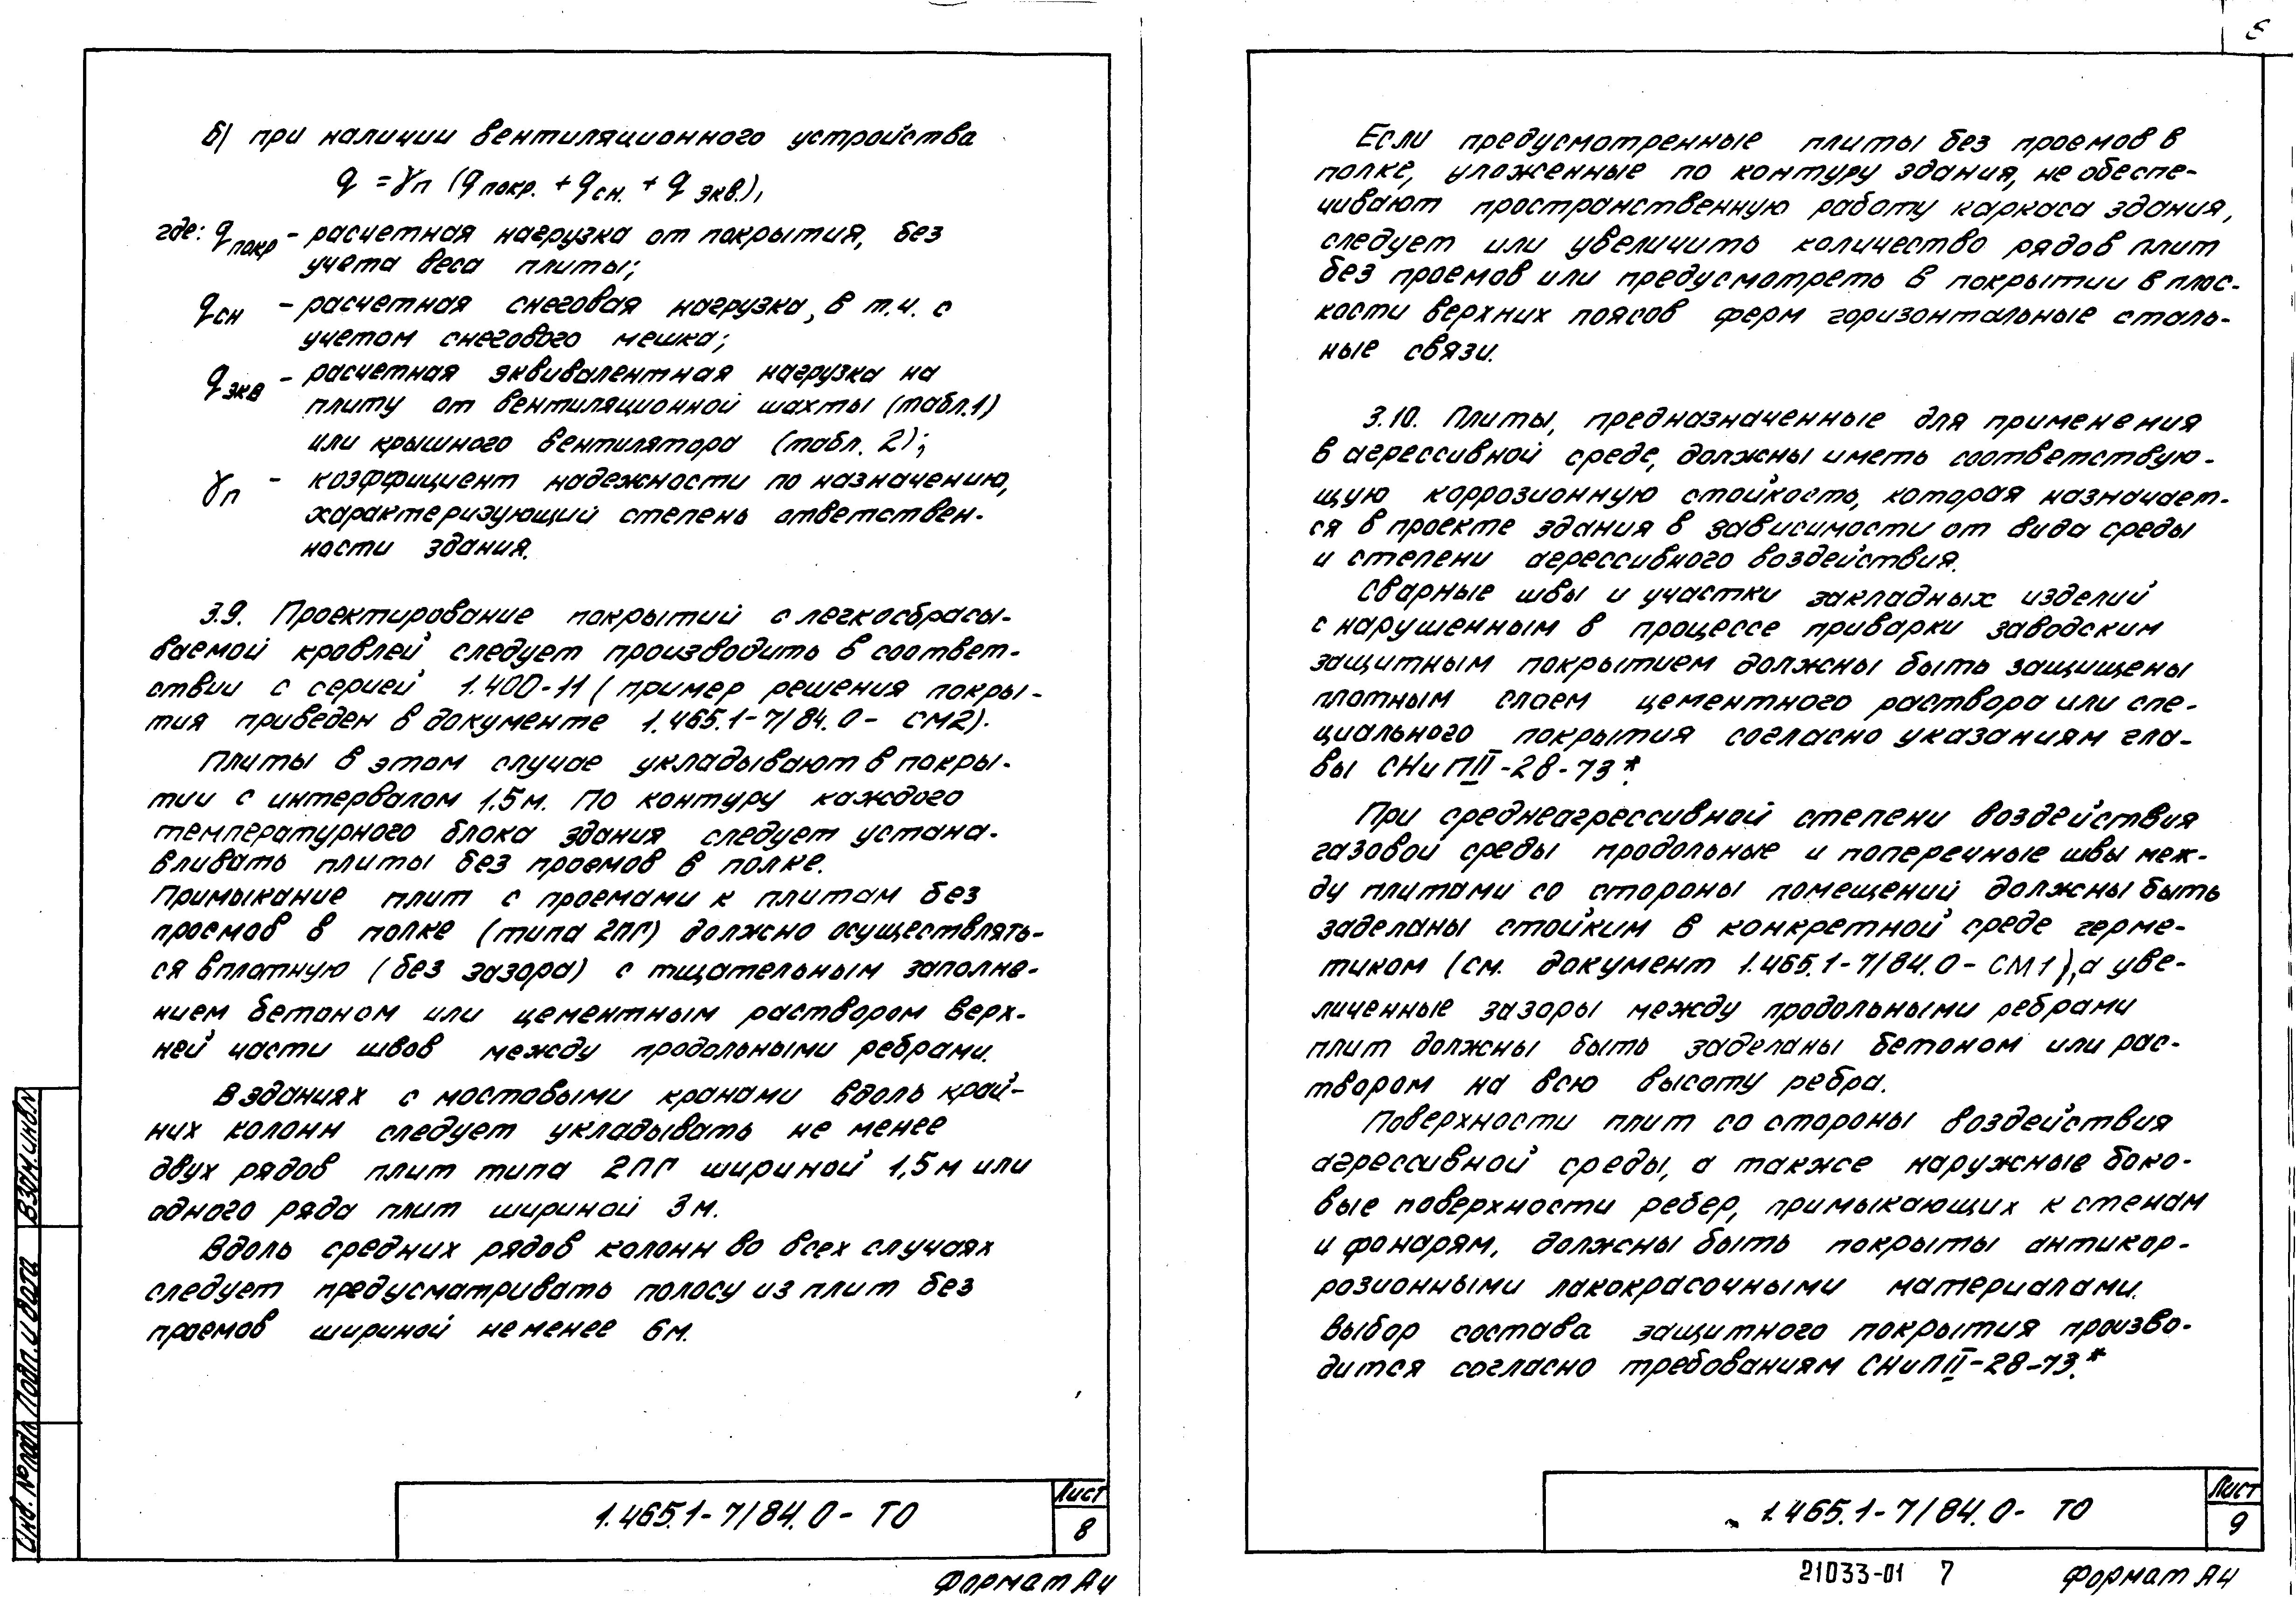 б) при наличии вентиляционного устройства
q = γп (qпокр. + qсн. + qэкв.),
где: qпокр - расчетная нагрузка от покрытия, без
учета веса плиты;
qсн - расчетная снеговая нагрузка, в т.ч. с
учетом снегового мешка;
qэкв - расчетная эквивалентная нагрузка на
плиту от вентиляционной шахты (табл.1)
или крышного вентилятора (табл. 2);
γп - коэффициент надежности по назначению,
характеризующий степень ответствен-
ности здания.
3.9. Проектирование покрытий с легкосбрасы-
ваемой кровлей следует производить в соответ-
ствии с серией 1.400-11 (пример решения покры-
тия приведен в документе 1.465.1-7/84.0- СМ2).
Плиты в этом случае укладывают в покры-
тии с интервалом 1,5м. По контуру каждого
температурного блока здания следует устана-
вливать плиты без проемов в полке.
Примыкание плит с проемами к плитам без
проемов в полке (типа 2ПГ) должно осуществлять-
ся вплотную (без зазора) с тщательным заполне-
нием бетоном или цементным раствором верх-
ней части швов между продольными ребрами.
В зданиях с мостовыми кранами вдоль край-
них колонн следует укладывать не менее
двух рядов плит типа 2ПГ шириной 1,5м или
одного ряда плит шириной 3м.
Вдоль средних рядов колонн во всех случаях
следует предусматривать полосу из плит без
проемов шириной не менее 6м.
Инв. № подл. Подп. и дата Взам. инв. №
1.465.1-7/84.0- ТО
Лист
8
Формат А4
Если предусмотренные плиты без проемов в
полке, уложенные по контуру здания, не обеспе-
чивают пространственную работу каркаса здания,
следует или увеличить количество рядов плит
без проемов или предусмотреть в покрытии в плос-
кости верхних поясов ферм горизонтальные сталь-
ные связи.
3.10. Плиты, предназначенные для применения
в агрессивной среде, должны иметь соответствую-
щую коррозионную стойкость, которая назначает-
ся в проекте здания в зависимости от вида среды
и степени агрессивного воздействия.
Сварные швы и участки закладных изделий
с нарушенным в процессе приварки заводским
защитным покрытием должны быть защищены
плотным слоем цементного раствора или спе-
циального покрытия согласно указаниям гла-
вы СНиП II-28-73*.
При среднеагрессивной степени воздействия
газовой среды продольные и поперечные швы меж-
ду плитами со стороны помещений должны быть
заделаны стойким в конкретной среде герме-
тиком (см. документ 1.465.1-7/84.0- СМ1), а уве-
личенные зазоры между продольными ребрами
плит должны быть заделаны бетоном или рас-
твором на всю высоту ребра.
Поверхности плит со стороны воздействия
агрессивной среды, а также наружные боко-
вые поверхности ребер, примыкающих к стенам
и фонарям, должны быть покрыты антикор-
розионными лакокрасочными материалами.
Выбор состава защитного покрытия произво-
дится согласно требованиям СНиП II-28-73.*
1.465.1-7/84.0- ТО
Лист
9
21033-01 7
Формат А4